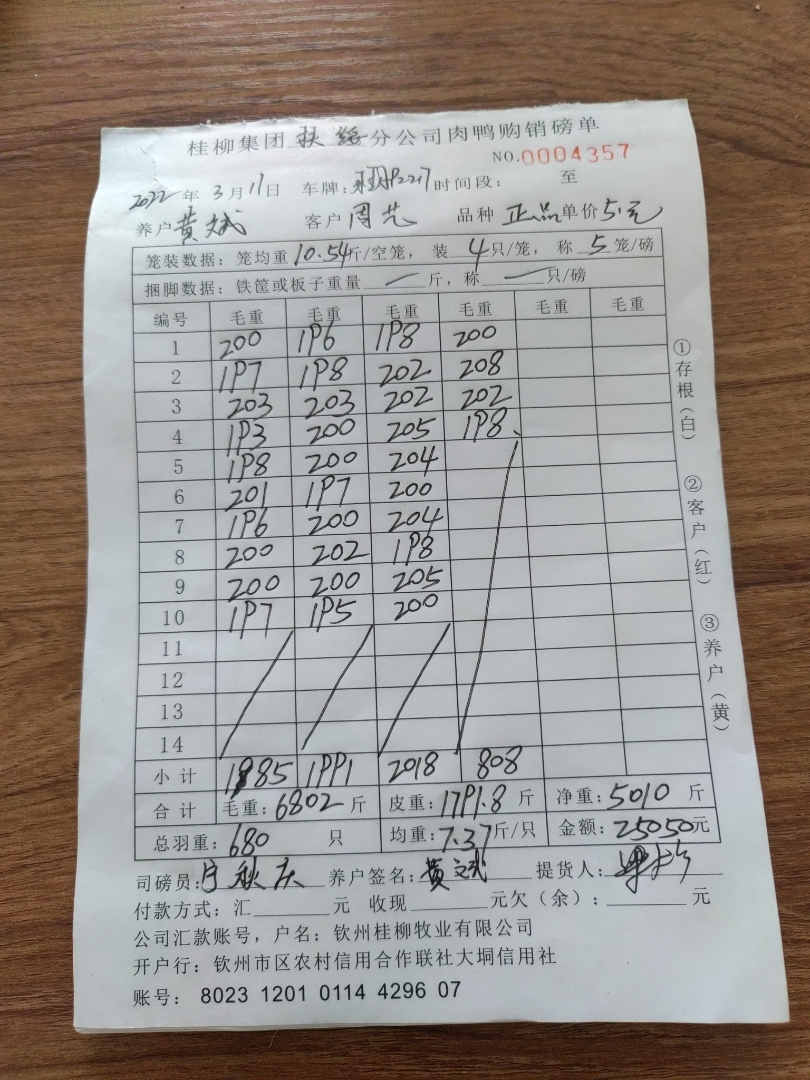 桂柳集团 扶绥 分公司肉鸭购销磅单
NO.0004357
2022年3月11日 车牌: 时间段: 至
养户 黄斌 客户 周艺 品种 正品 单价 5.元
笼装数据: 笼均重 10.54斤/空笼, 装 4只/笼, 称 5笼/磅
捆脚数据: 铁筐或板子重量 — 斤, 称 — 只/磅
编号 毛重 毛重 毛重 毛重 毛重 毛重
1 200 196 198 200
2 197 198 202 208
3 203 203 202 202
4 193 200 205 198
5 198 200 204
6 201 197 200
7 196 200 204
8 200 202 198
9 200 200 205
10 197 195 200
11
12
13
14
小计 1985 1991 2018 808
合计 毛重: 6802 斤 皮重: 1791.8 斤 净重: 5010 斤
总羽重: 680 只 均重: 7.37斤/只 金额: 25050元
司磅员: 宁秋庆 养户签名: 黄斌 提货人:
付款方式: 汇 元 收现 元欠(余): 元
公司汇款账号, 户名: 钦州桂柳牧业有限公司
开户行: 钦州市区农村信用合作联社大垌信用社
账号: 8023 1201 0114 4296 07
①存根(白)
②客户(红)
③养户(黄)